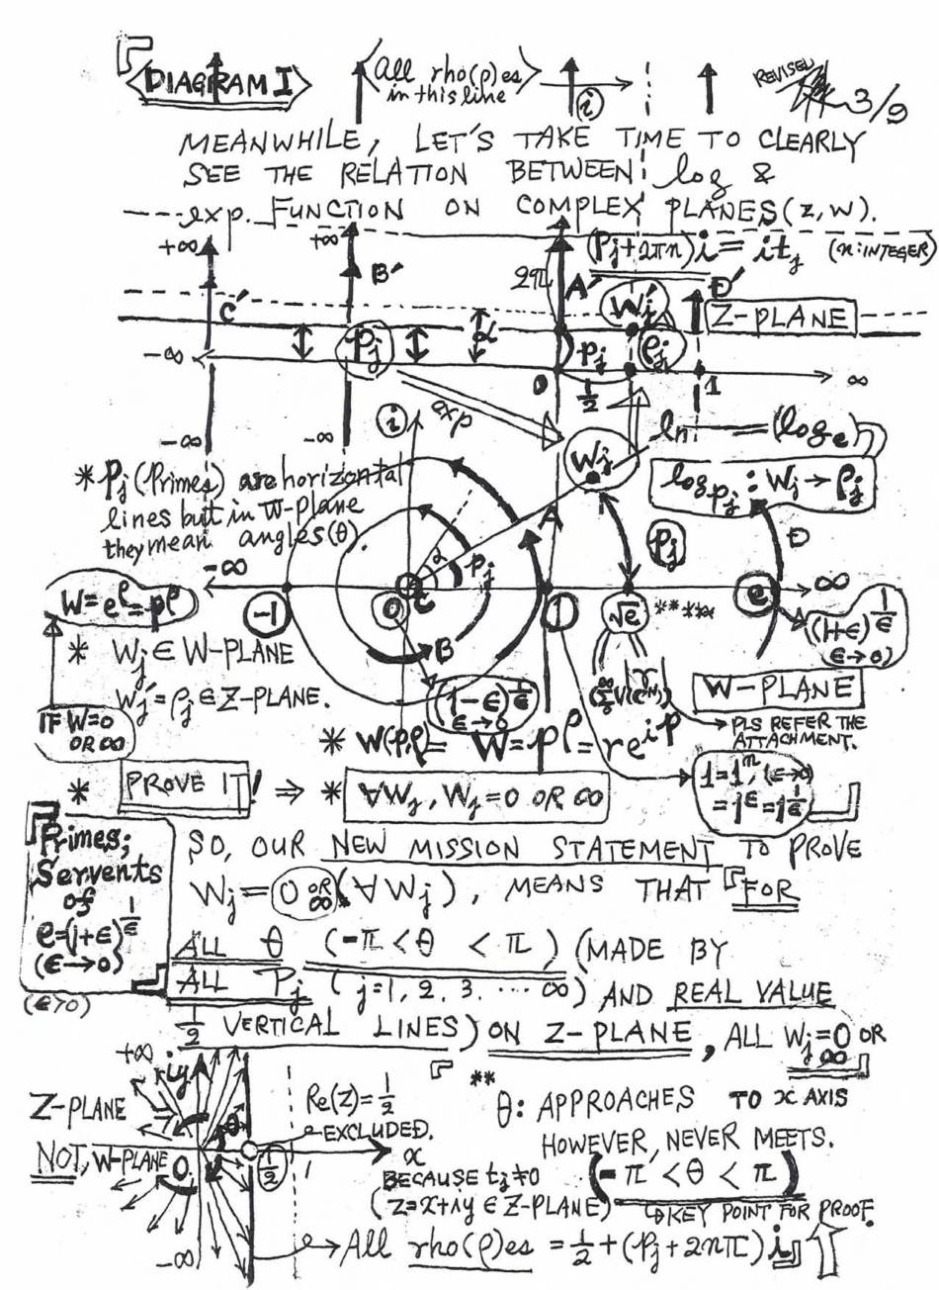 DIAGRAM I
All rho(ρ)es
in this line
i
REVISED
3/9
MEANWHILE, LET'S TAKE TIME TO CLEARLY
SEE THE RELATION BETWEEN log &
exp. FUNCTION ON COMPLEX PLANES(z,w).
+∞
+∞
(Pj+2πn)i=itj (n:INTEGER)
2π
A'
B'
C'
D'
Wj'
Z-PLANE
α
Pj
Pj
ρj
-∞
0
1/2
1
∞
-∞
-∞
i
exp
ln (loge)
Wj
logPj : Wj→ρj
* Pj (Primes) are horizontal
lines but in W-plane
they mean angles(θ).
A
D
α
Pj
Pj
-∞
∞
-1
0
1
√e ****
e
B
W=e^ρ=p^ρ
(1+ε)^1/ε
(ε→0)
* Wj∈W-PLANE
Wj'=ρj∈Z-PLANE.
(1-ε)^1/ε
ε→0
W-PLANE
→PLS REFER THE
ATTACHMENT.
IF W=0
OR ∞
* W(P,ρ)= W=P^ρ=re^ip
* PROVE IT! ⇒ * ∀Wj, Wj=0 OR ∞
1=1^n, (ε→0)
=1^ε=1^1/ε
Primes;
Servents
of
e=(1+ε)^1/ε
(ε→0)
(ε>0)
SO, OUR NEW MISSION STATEMENT TO PROVE
Wj=0 OR ∞ (∀Wj), MEANS THAT 「FOR
ALL θ (-π<θ<π) (MADE BY
ALL Pj (j=1,2,3,…∞) AND REAL VALUE
1/2 VERTICAL LINES) ON Z-PLANE, ALL Wj=0 OR
∞」
+∞
iy
Z-PLANE
NOT, W-PLANE
θ
0
1/2
-∞
Re(z)=1/2
EXCLUDED.
x
BECAUSE tj≠0
(z=x+iy∈Z-PLANE)
「 **
θ: APPROACHES TO x AXIS
HOWEVER, NEVER MEETS.
(-π<θ<π)
↳KEY POINT FOR PROOF.
→All rho(ρ)es =1/2+(Pj+2nπ)i」